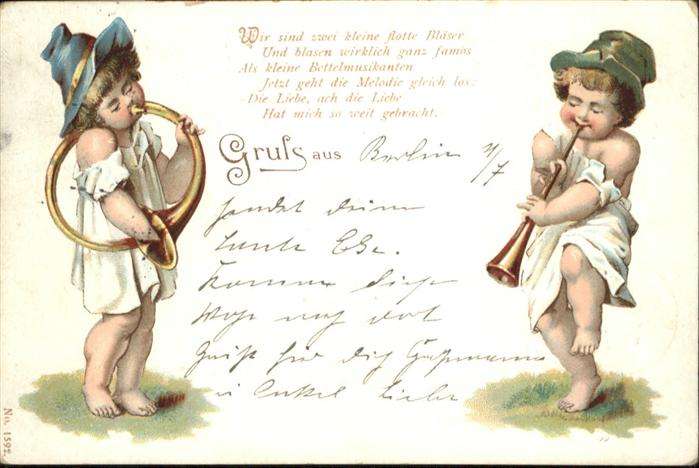 Wir sind zwei kleine flotte Bläser
Und blasen wirklich ganz famos
Als kleine Bettelmusikanten
Jetzt geht die Melodie gleich los:
Die Liebe, ach die Liebe
Hat mich so weit gebracht.
Gruss aus Berlin /7
sendet deine
Tante
Komme diese
Gruß für dich
Onkel
No. 1592.